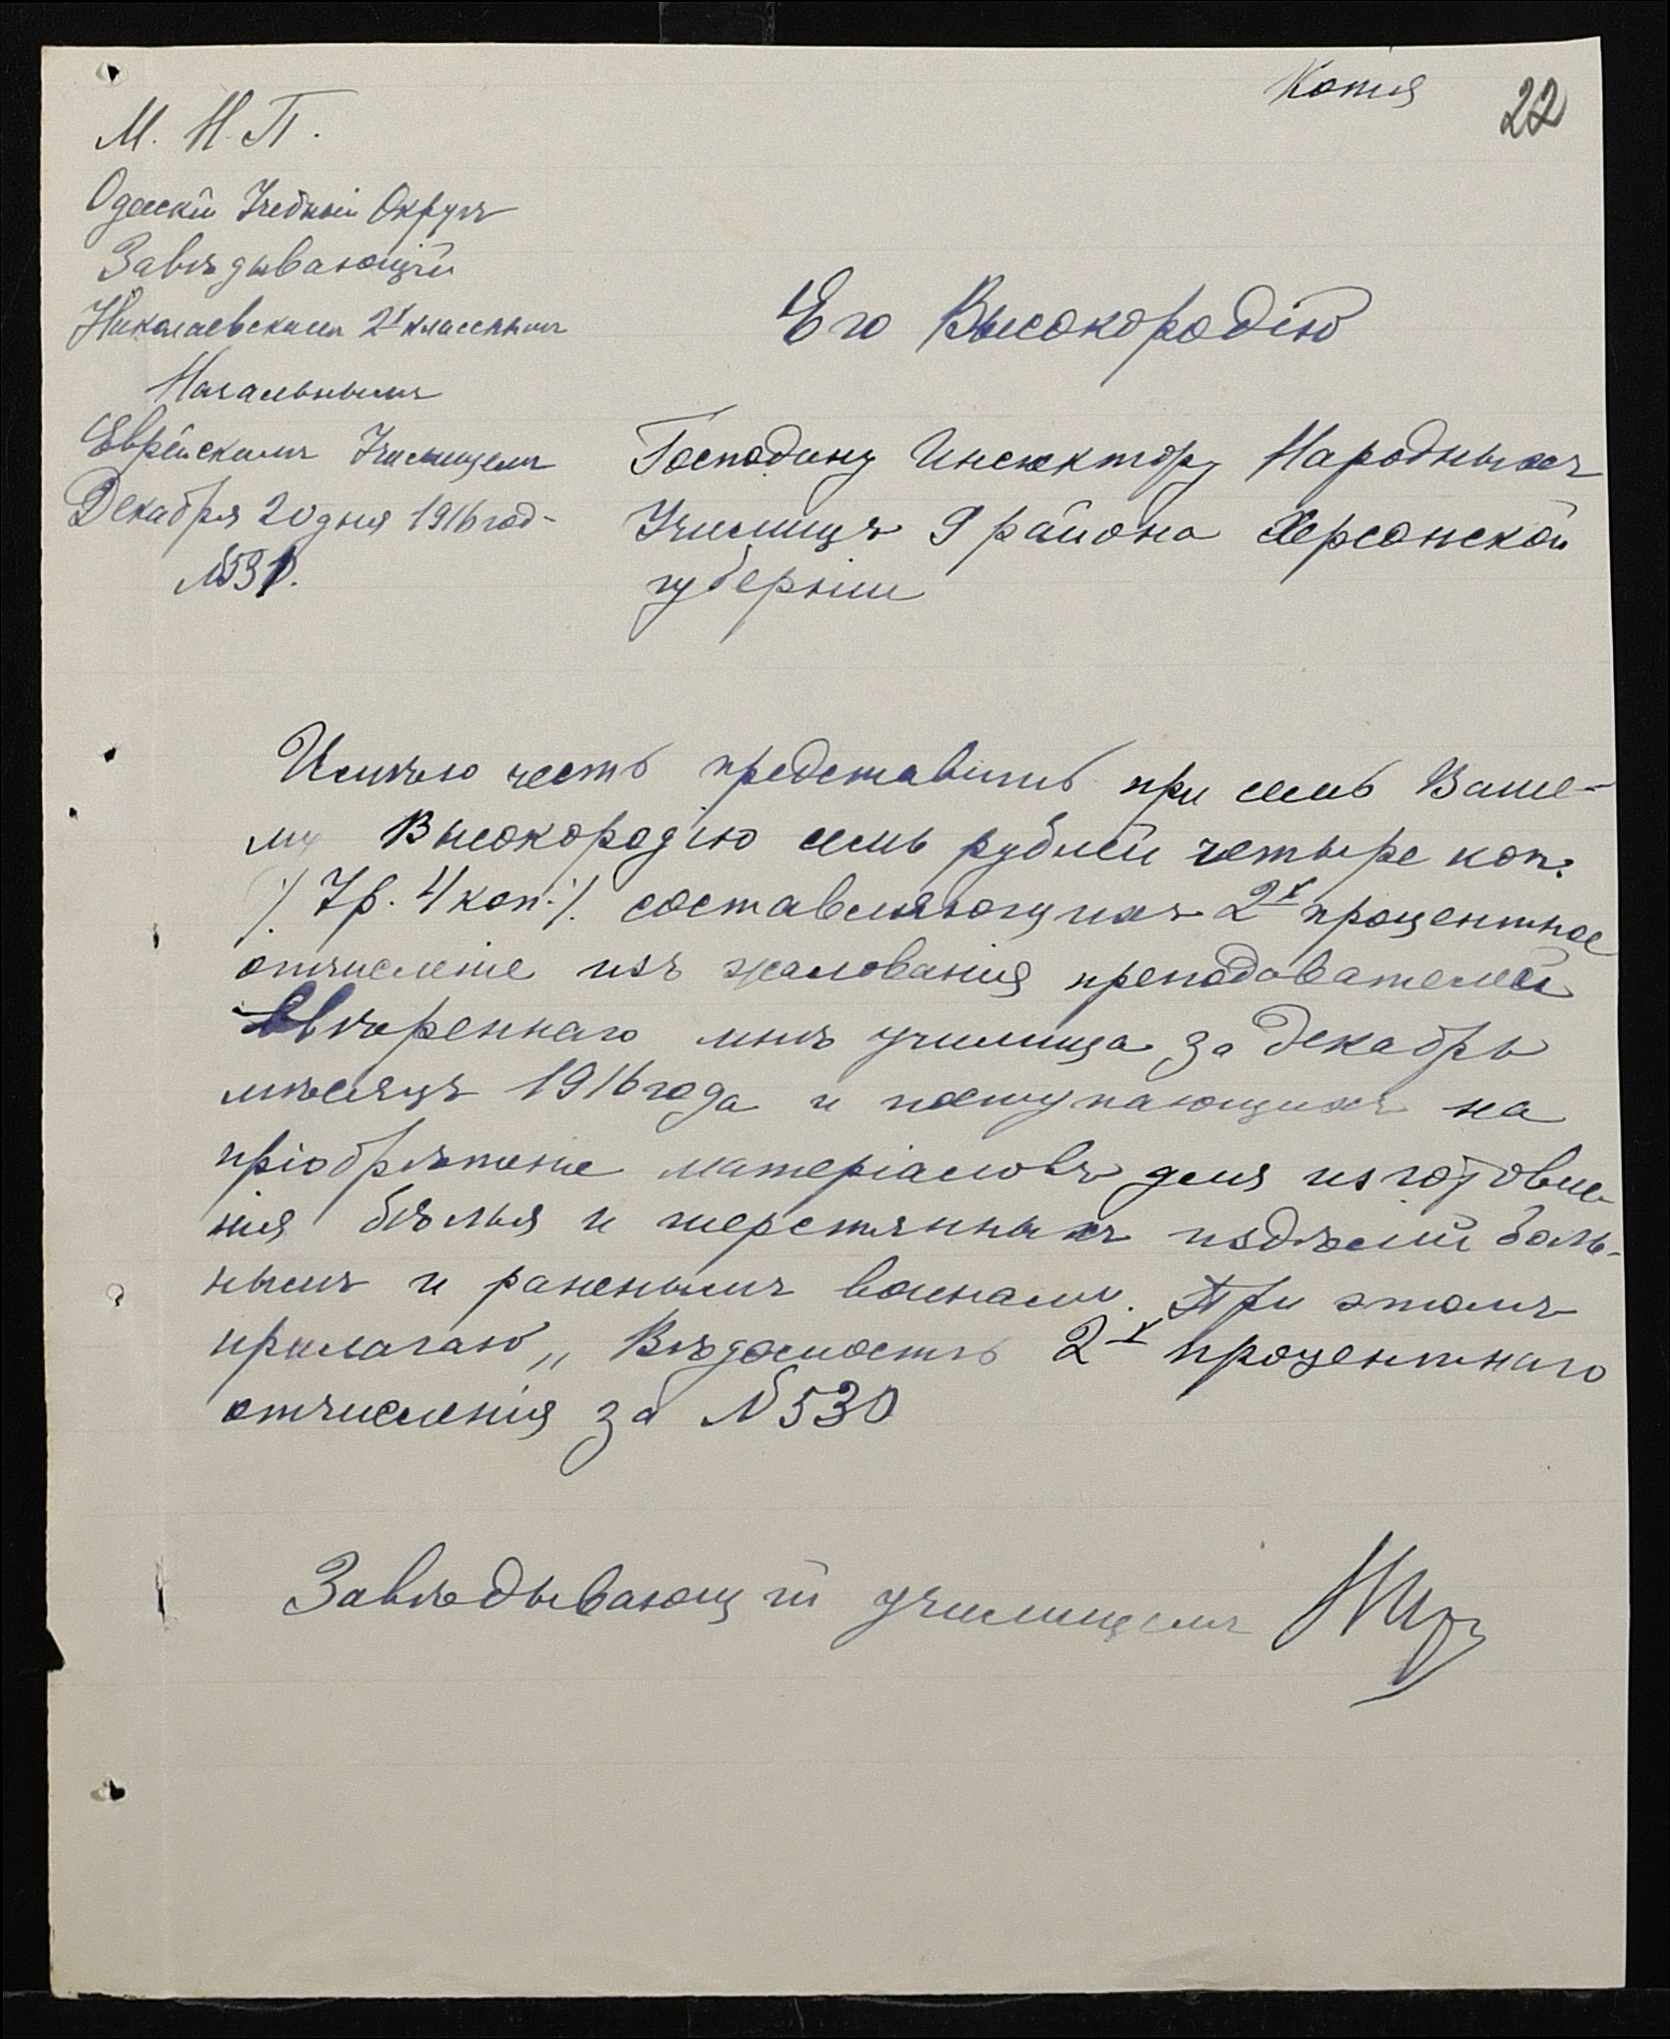 Копія
22
М. Н. П.
Одесскій Учебный Округъ
Завѣдывающій
Николаевскимъ 2х класснымъ
Начальнымъ
Еврейскимъ Училищемъ
Декабря 20 дня 1916 год-
№531.
Его Высокородію
Господину Инспектору Народныхъ
Училищъ 9 района Херсонской
губерніи
Имѣю честь представить при семъ Ваше-
му Высокородію семь рублей четыре коп.
/. 7р. 4 коп. ./. составляющихъ 2х процентное
отчисленіе изъ жалованія преподавателей
ввѣреннаго мнѣ училища за Декабрь
мѣсяцъ 1916 года и поступающихъ на
пріобрѣтеніе матеріаловъ для изготовле-
нія бѣлья и шерстянныхъ издѣлій боль-
нымъ и раненымъ воинамъ. При этомъ
прилагаю „ Вѣдомость 2-х процентнаго
отчисленія за №530
Завѣдывающій училищемъ